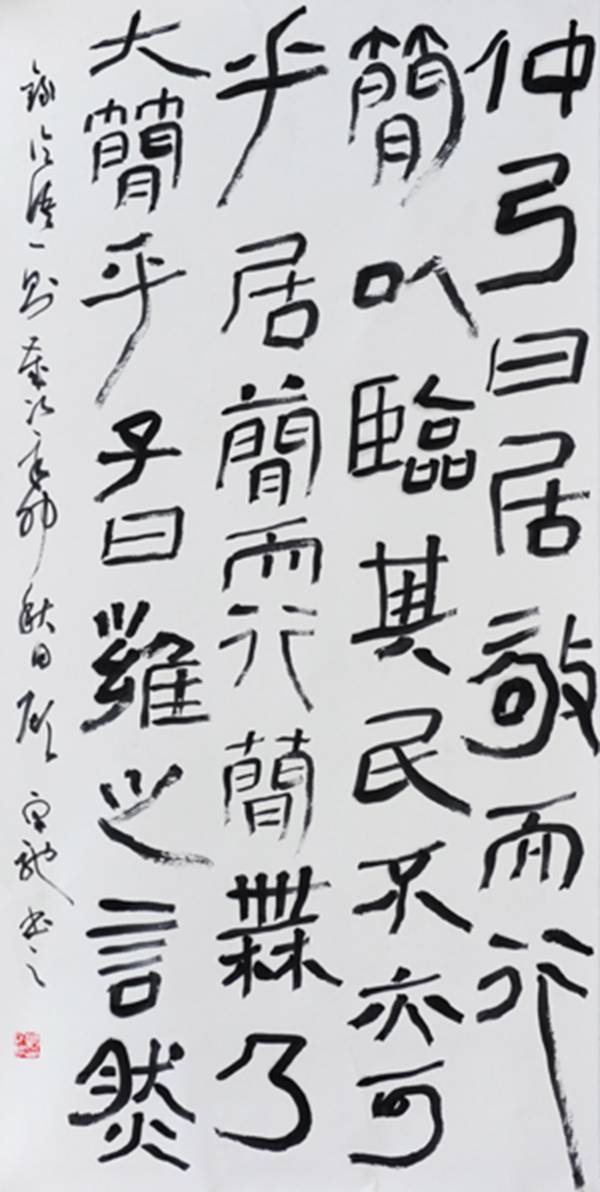 仲弓曰居敬而行
簡㕥臨其民不亦可
乎居簡而行簡無乃
大簡乎子曰雍之言然
錄論語一則歲次辛卯秋日書之